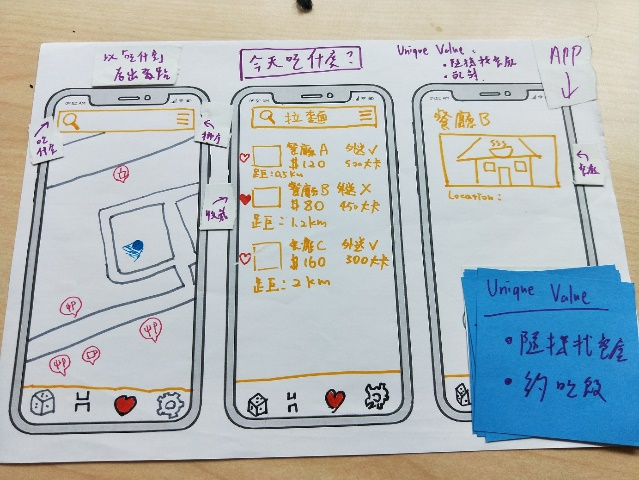 以「吃什
為出發點
今天吃什麼?
Unique Value:
• 隨機找
APP
吃
什麼
排序
收藏
拉麵
餐廳A 外送 ✓
$120 520大卡
距: 0.5km
餐廳B 外送 X
$80 450大卡
距: 1.2km
餐廳C 外送 ✓
$160 300大卡
距: 2km
餐廳B
Location:
Unique Value
• 隨機找
• 約吃飯